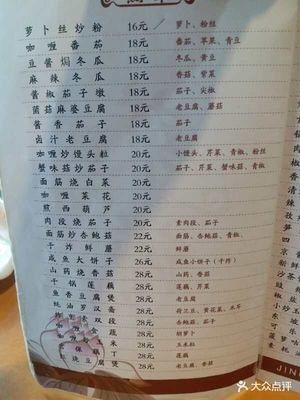 萝卜丝炒粉 16元 / 萝卜、粉丝
咖喱番茄 18元 番茄、苹果、青豆
豆酱焗冬瓜 18元 冬瓜、黄豆
麻辣冬瓜 18元 番茄、紫菜
酱椒茄子墩 18元 茄子、尖椒
菌菇麻婆豆腐 18元 老豆腐、蘑菇
酱香茄子 18元 茄子
卤汁老豆腐 18元 老豆腐
咖喱炒馒头粒 20元 小馒头、芹菜、青椒、粉丝
蟹味菇炒茄子 20元 茄子、蟹味菇、青椒
面筋烧白菜 20元
咖喱菜花 20元
煎西葫芦 20元
肉段烧茄子 20元 素肉段、茄子
面筋炒杏鲍菇 22元 面筋、杏鲍菇、青椒
干炸鲜蘑 22元 鲜蘑
咸鱼大饼子 26元 咸鱼小饼子(干炸)
山药烧香菇 28元 山药、香菇
干锅莲藕 28元 莲藕、芹菜
鱼香豆腐煲 28元 老豆腐
蚝油罗汉斋 28元 荷兰豆、黄花菜、水芹
素双段 28元 杏鲍菇、茄子
蔬 28元 胡萝卜
米 28元 玉米粒
保 丁 28元 莲藕
烧豆腐煲 28元 老豆腐、香菇
JING
大众点评